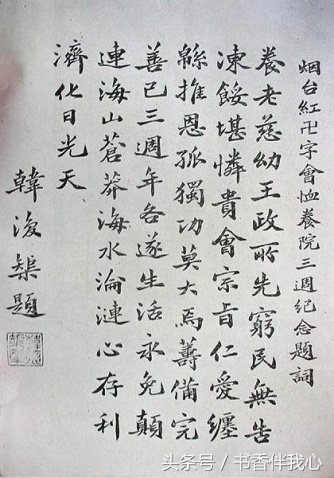 烟台紅卍字會恤養院三週紀念題詞
養老慈幼王政所先窮民無告
凍餒堪憐貴會宗旨仁愛纏
緜推恩孤獨功莫大焉善備完
善已三週年各遂生活永免顛
連海山蒼莽海水淪漣心存利
濟化日光天
韓復榘題
头条号/书香伴我心